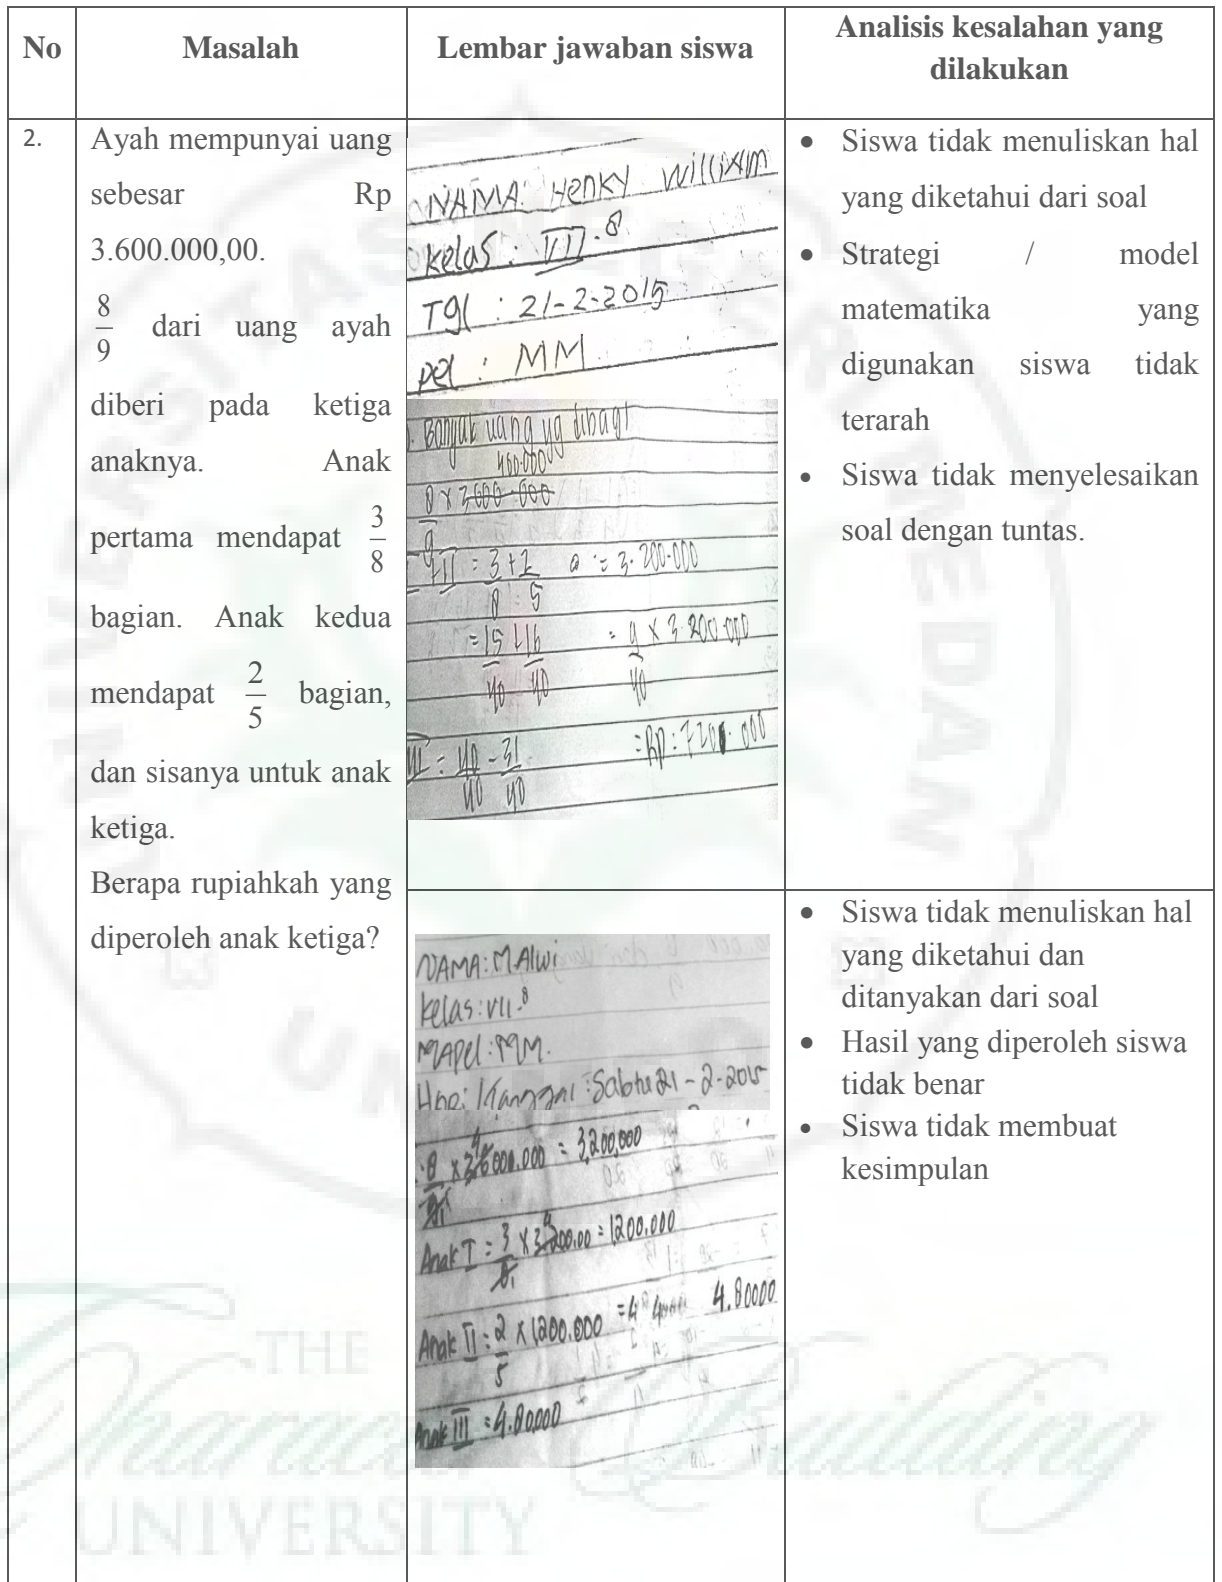 No
Masalah
Lembar jawaban siswa
Analisis kesalahan yang
dilakukan
2.
Ayah mempunyai uang
sebesar Rp
3.600.000,00.
8/9 dari uang ayah
diberi pada ketiga
anaknya. Anak
pertama mendapat 3/8
bagian. Anak kedua
mendapat 2/5 bagian,
dan sisanya untuk anak
ketiga.
Berapa rupiahkah yang
diperoleh anak ketiga?
NAMA: HENKY WilliAM
Kelas : VII.8
Tgl : 21-2-2015
pel : MM
Banyak uang yg dibagi
400.000
8/9 x 3600.000
= 3.200.000
= 15/40 + 16/40
= 9/40 x 3.200.000
III = 40/40 - 31/40
• Siswa tidak menuliskan hal
yang diketahui dari soal
• Strategi / model
matematika yang
digunakan siswa tidak
terarah
• Siswa tidak menyelesaikan
soal dengan tuntas.
NAMA: M Alwi
Kelas: VII-8
MAPel: MM.
Sabtu 21-2-2015
= 3,200,000
Anak I : 3/8 x 3200.00 = 1,200.000
Anak II : 2/5 x 1,200.000
4.80000
Anak III = 4.80.000
• Siswa tidak menuliskan hal
yang diketahui dan
ditanyakan dari soal
• Hasil yang diperoleh siswa
tidak benar
• Siswa tidak membuat
kesimpulan
THE
Character Building
UNIVERSITY